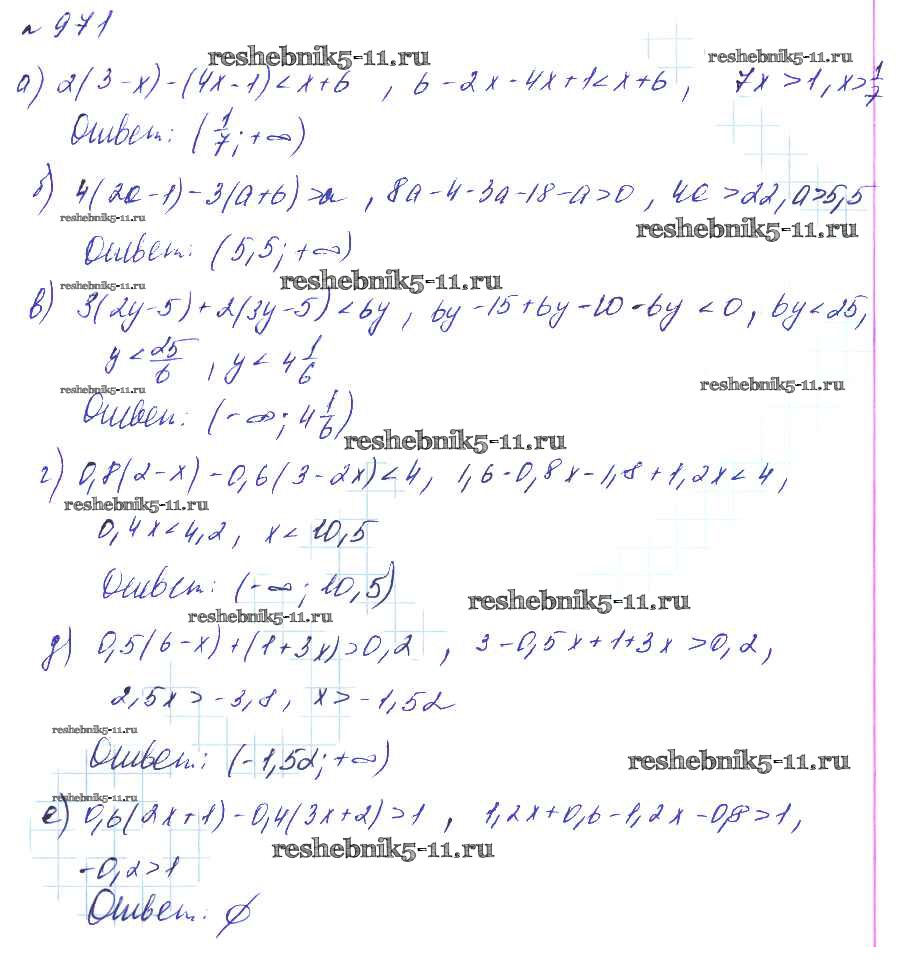 № 971
reshebnik5-11.ru
reshebnik5-11.ru
а) 2(3-x)-(4x-1)<x+6 , 6-2x-4x+1<x+6, 7x>1, x>1/7
Ответ: (1/7; +∞)
б) 4(2a-1)-3(a+6)>a , 8a-4-3a-18-a>0 , 4a>22, a>5,5
reshebnik5-11.ru
reshebnik5-11.ru
Ответ: (5,5; +∞)
reshebnik5-11.ru
reshebnik5-11.ru
в) 3(2y-5)+2(3y-5)<6y, 6y-15+6y-10-6y<0, 6y<25,
y<25/6 , y<4 1/6
reshebnik5-11.ru
reshebnik5-11.ru
Ответ: (-∞; 4 1/6)
reshebnik5-11.ru
г) 0,8(2-x)-0,6(3-2x)<4, 1,6-0,8x-1,8+1,2x<4,
reshebnik5-11.ru
0,4x<4,2, x<10,5
Ответ: (-∞; 10,5)
reshebnik5-11.ru
reshebnik5-11.ru
д) 0,5(6-x)+(1+3x)>0,2 , 3-0,5x+1+3x>0,2,
2,5x>-3,8, x>-1,52
reshebnik5-11.ru
Ответ: (-1,52; +∞)
reshebnik5-11.ru
reshebnik5-11.ru
е) 0,6(2x+1)-0,4(3x+2)>1 , 1,2x+0,6-1,2x-0,8>1,
reshebnik5-11.ru
-0,2>1
Ответ: ∅